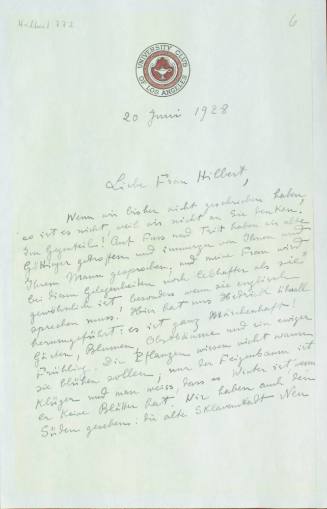 Hilbert 777
6
UNIVERSITY CLUB
OF LOS ANGELES
20 Juni 1928
Liebe Frau Hilbert,
Wenn wir bisher nicht geschrieben haben,
so ist es nicht, weil wir nicht an Sie denken.
Im Gegenteil! Auf Fuss und Tritt haben wir alte
Göttinger getroffen und immerzu von Ihnen und
Ihrem Mann gesprochen, und meine Frau wird
bei diesen Gelegenheiten noch lebhafter als sie
gewöhnlich ist besonders wenn sie englisch
sprechen muss! Hier hat uns Hedrick überall
herumgeführt: es ist ganz märchenhaft!
Gärten, Blumen, Obstbäume und ein ewiger
Frühling. Die Pflanzen wissen nicht wann
sie blühen sollen; nur der Feigenbaum ist
klüger und man weiss, dass es Winter ist wenn
er keine Blätter hat. Wir haben auch den
Süden gesehen: die alte Sklavenstadt New